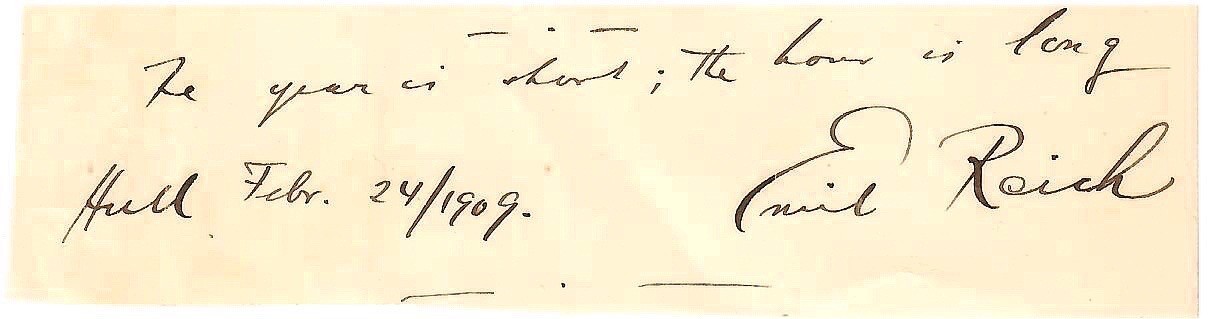 The year is short; the hour is long
Hull Febr. 24/1909.
Emil Reich